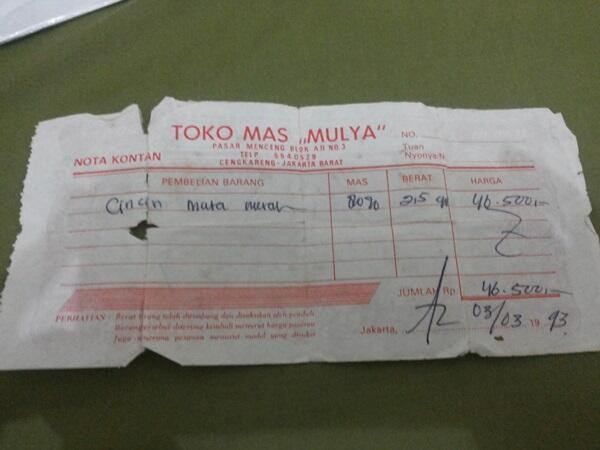 TOKO MAS „MULYA"
PASAR MENCENG BLOK A II NO. 3
TELP. 5540529
CENGKARENG - JAKARTA BARAT
NO.
Tuan
Nyonya/N.
NOTA KONTAN
PEMBELIAN BARANG MAS BERAT HARGA
Cincin mata merah 80% 2,5 gr 46.500,-
JUMLAH Rp. 46.500,-
PERHATIAN : Berat barang telah ditimbang dan disaksikan oleh pembeli
Barang tersebut diterima kembali menurut harga pasaran
Juga menerima pesanan menurut model yang disukai
Jakarta, 03/03 19 93